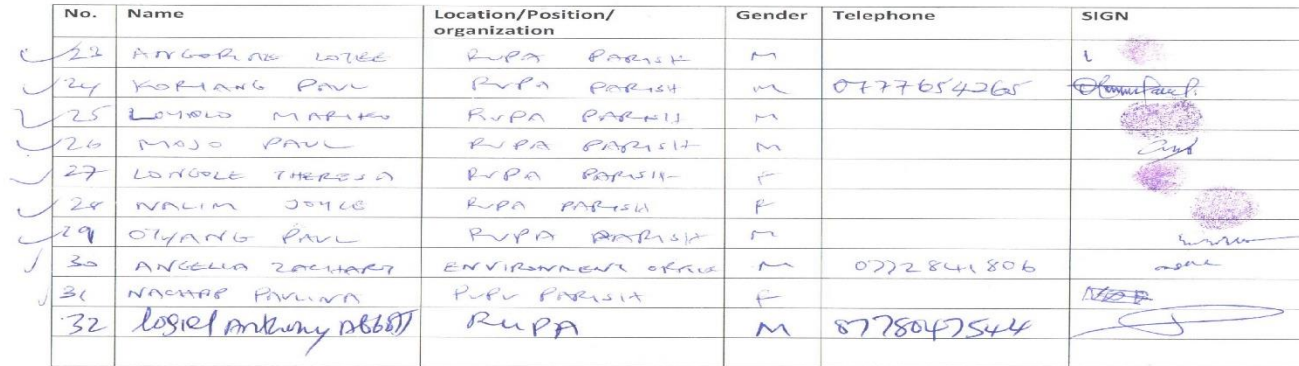 No. Name Location/Position/organization Gender Telephone SIGN
23 RUPA PARISH M
24 KORIANG PAUL RUPA PARISH M 0777654265
25 LOYOLO MARIKO RUPA M
26 MOJO PAUL RUPA PARISH M
27 LONGOLE THERESA RUPA PARISH F
28 NALIM JOYCE RUPA PARISH F
29 OYANG PAUL RUPA PARISH M
30 ANGELLA ZACHARY ENVIRONMENT OFFICE M 0772841806
31 PAULINA PARISH F
32 LOGIEL Anthony RUPA M 0778047544